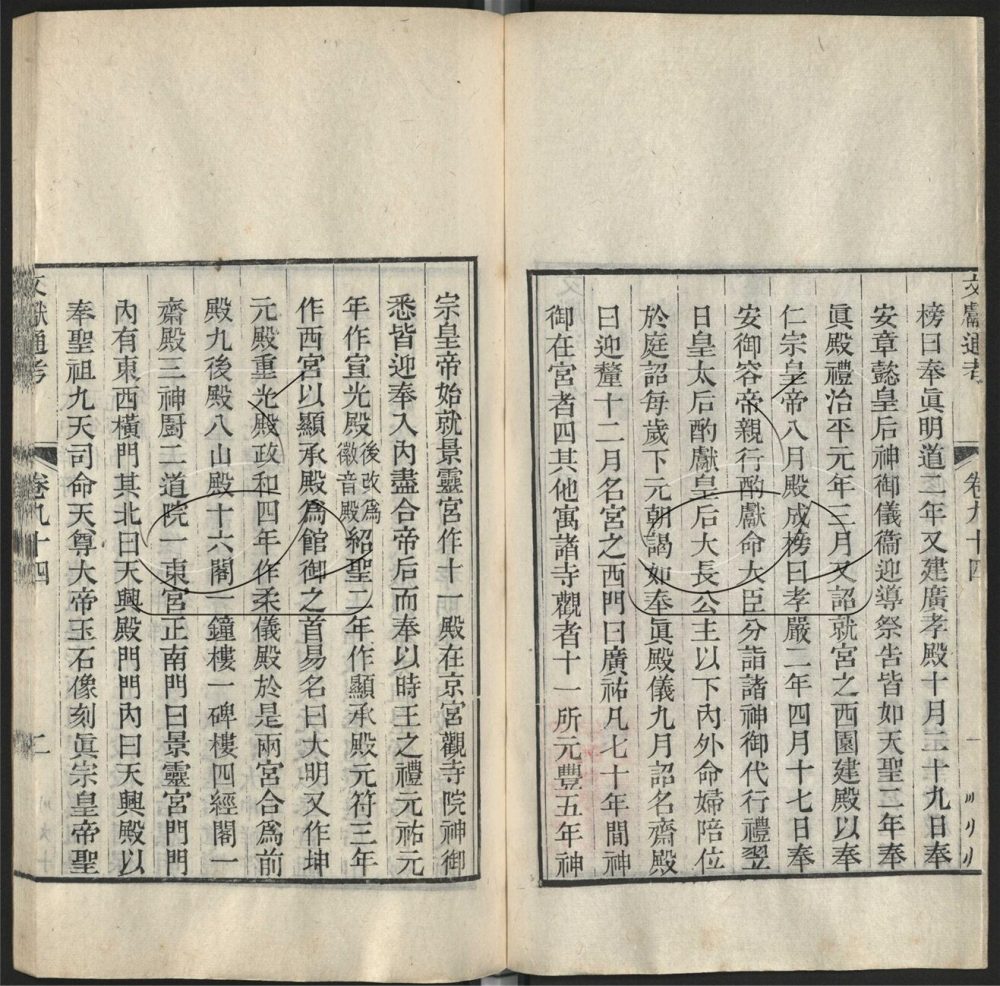 文獻通考 卷九十四
榜曰奉眞明道二年又建廣孝殿十月二十九日奉
安章懿皇后神御儀衞迎導祭告皆如天聖二年奉
眞殿禮治平元年三月又詔就宮之西園建殿以奉
仁宗皇帝八月殿成榜曰孝嚴二年四月十七日奉
安御容帝親行酌獻命大臣分詣諸神御代行禮翌
日皇太后酌獻皇后大長公主以下內外命婦陪位
於庭詔每歲下元朝謁如奉眞殿儀九月詔名齋殿
曰迎釐十二月名宮之西門曰廣祐凡七十年間神
御在宮者四其他寓諸寺觀者十一所元豐五年神
宗皇帝始就景靈宮作十一殿在京宮觀寺院神御
悉皆迎奉入內盡合帝后而奉以時王之禮元祐元
年作宣光殿後改爲徽音殿紹聖二年作顯承殿元符三年
作西宮以顯承殿爲館御之首易名曰大明又作坤
元殿重光殿政和四年作柔儀殿於是兩宮合爲前
殿九後殿八山殿十六閣一鐘樓一碑樓四經閣一
齋殿三神厨二道院一東宮正南門曰景靈宮門門
內有東西橫門其北曰天興殿門門內曰天興殿以
奉聖祖九天司命天尊大帝玉石像刻眞宗皇帝聖
文獻通考 卷九十四 二